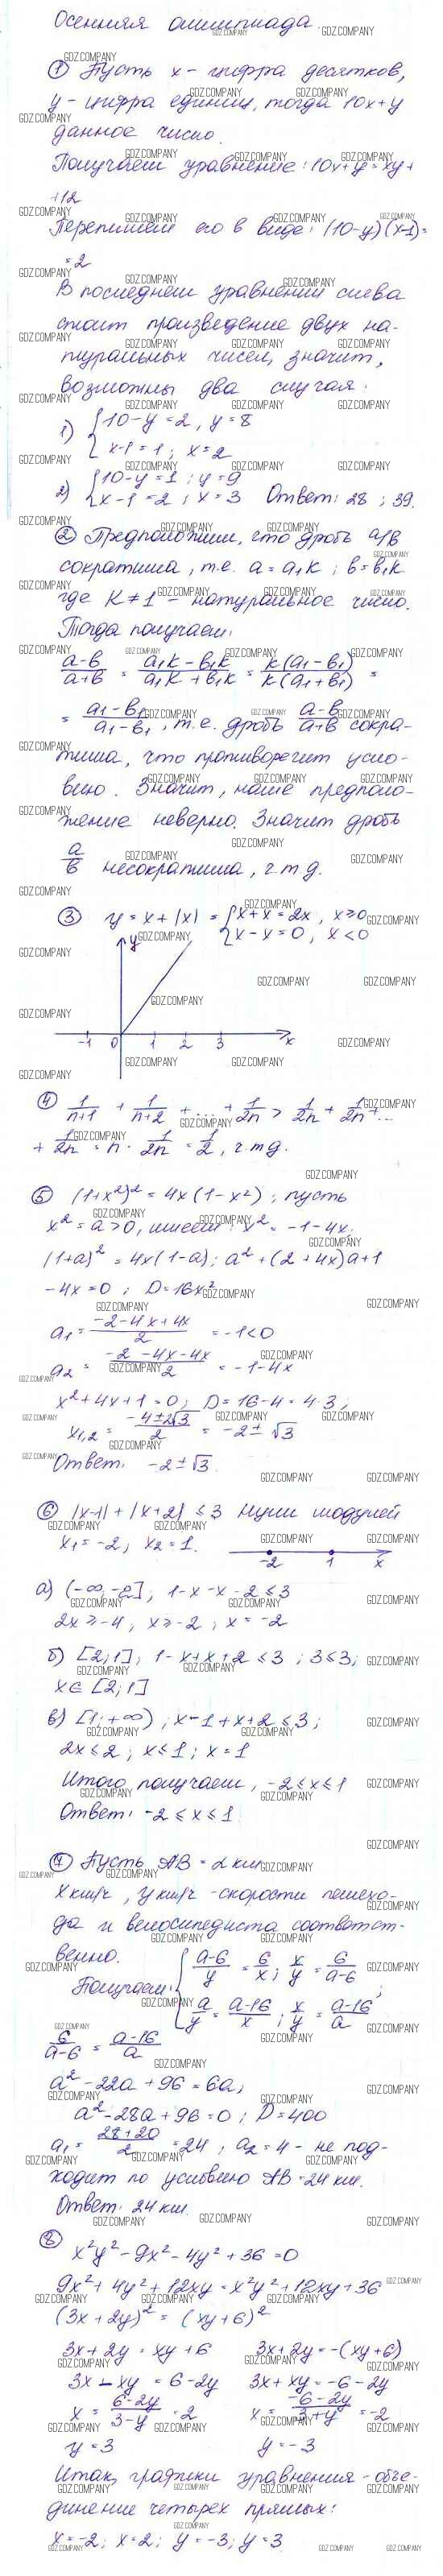 Осенняя олимпиада.
① Пусть x - цифра десятков,
y - цифра единиц, тогда 10x+y
данное число.
Получаем уравнение: 10x+y=xy+
+12
Перепишем его в виде: (10-y)(x-1)=
=2
В последнем уравнении слева
стоит произведение двух на-
туральных чисел, значит,
возможны два случая:
1) { 10-y=2, y=8
x-1=1; x=2
2) { 10-y=1; y=9
x-1=2; x=3 Ответ: 28; 39.
② Предположим, что дробь a/b
сократима, т.е. a=a₁k; b=b₁k
где k≠1 - натуральное число.
Тогда получаем:
(a-b)/(a+b) = (a₁k-b₁k)/(a₁k+b₁k) = k(a₁-b₁)/k(a₁+b₁) =
= (a₁-b₁)/(a₁-b₁), т.е. дробь (a-b)/(a+b) сокра-
тима, что противоречит усло-
вию. Значит, наше предполо-
жение неверно. Значит дробь
a/b несократима, ч.т.д.
③ y=x+|x| = { x+x=2x, x≥0
x-x=0, x<0
y
-1 0 1 2 3 x
④ 1/(n+1) + 1/(n+2) + ... + 1/2n > 1/2n + 1/2n + ...
+ 1/2n = n · 1/2n = 1/2, ч.т.д.
⑤ (1+x²)²=4x(1-x²); пусть
x²=a>0, имеем: x²=-1-4x;
(1+a)²=4x(1-a); a²+(2+4x)a+1
-4x=0; D=16x²
a₁= (-2-4x+4x)/2 = -1<0
a₂= (-2-4x-4x)/2 = -1-4x
x²+4x+1=0; D=16-4=4·3;
x₁,₂= (-4±2√3)/2 = -2±√3
Ответ: -2±√3.
⑥ |x-1|+|x+2|≤3 Нули модулей
x₁=-2; x₂=1.
-2 1 x
а) (-∞,-2], 1-x-x-2≤3
2x≥-4, x≥-2; x=-2
б) [2;1]; 1-x+x+2≤3; 3≤3;
x∈[2;1]
в) [1;+∞); x-1+x+2≤3;
2x≤2; x≤1; x=1
Итого получаем, -2≤x≤1
Ответ: -2≤x≤1
⑦ Пусть AB=a км
x км/ч, y км/ч - скорости пешехо-
да и велосипедиста соответст-
венно.
Получаем: { (a-6)/y = 6/x; x/y = 6/(a-6)
a/y = (a-16)/x; x/y = (a-16)/a;
6/(a-6) = (a-16)/a
a²-22a+96=6a;
a²-28a+96=0; D=400
a₁= (28+20)/2 =24; a₂=4 - не под-
ходит по условию AB=24 км.
Ответ: 24 км.
⑧
x²y²-9x²-4y²+36=0
9x²+4y²+12xy=x²y²+12xy+36
(3x+2y)²=(xy+6)²
3x+2y=xy+6 3x+2y=-(xy+6)
3x-xy=6-2y 3x+xy=-6-2y
x= (6-2y)/(3-y) =2 x= (-6-2y)/(3+y) =-2
y=3 y=-3
Итак, графики уравнения - объе-
динение четырех прямых:
x=-2; x=2; y=-3; y=3